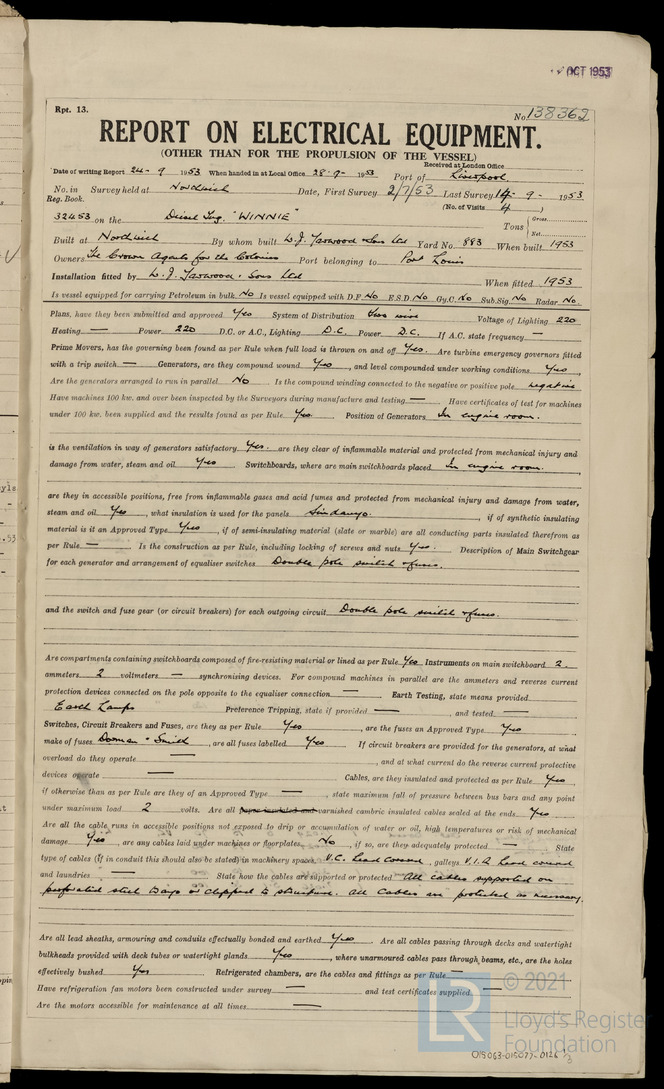 OCT 1953
Rpt. 13.
No. 138362
REPORT ON ELECTRICAL EQUIPMENT.
(OTHER THAN FOR THE PROPULSION OF THE VESSEL)
Received at London Office
Date of writing Report 24-9 1953 When handed in at Local Office 28-9- 1953 Port of Liverpool.
No. in Survey held at Northwich Date, First Survey 2/7/53 Last Survey 14-9- 1953
Reg. Book. (No. of Visits 4 )
32453 on the Diesel Tug. "WINNIE" Tons { Gross
Net
Built at Northwich By whom built W.J. Yarwood & Sons Ltd Yard No. 883 When built 1953
Owners The Crown Agents for the Colonies Port belonging to Port Louis
Installation fitted by W.J. Yarwood & Sons Ltd When fitted 1953
Is vessel equipped for carrying Petroleum in bulk No Is vessel equipped with D.F. No E.S.D. No Gy.C. No Sub.Sig. No Radar No
Plans, have they been submitted and approved Yes System of Distribution Two wire Voltage of Lighting 220
Heating — Power 220 D.C. or A.C., Lighting D.C. Power D.C. If A.C. state frequency —
Prime Movers, has the governing been found as per Rule when full load is thrown on and off Yes. Are turbine emergency governors fitted
with a trip switch — Generators, are they compound wound Yes, and level compounded under working conditions Yes,
Are the generators arranged to run in parallel No Is the compound winding connected to the negative or positive pole negative
Have machines 100 kw. and over been inspected by the Surveyors during manufacture and testing — Have certificates of test for machines
under 100 kw. been supplied and the results found as per Rule Yes. Position of Generators In engine room.
is the ventilation in way of generators satisfactory Yes. are they clear of inflammable material and protected from mechanical injury and
damage from water, steam and oil Yes Switchboards, where are main switchboards placed In engine room.
are they in accessible positions, free from inflammable gases and acid fumes and protected from mechanical injury and damage from water,
steam and oil Yes, what insulation is used for the panels Sindanyo, if of synthetic insulating
material is it an Approved Type Yes, if of semi-insulating material (slate or marble) are all conducting parts insulated therefrom as
per Rule — Is the construction as per Rule, including locking of screws and nuts Yes. Description of Main Switchgear
for each generator and arrangement of equaliser switches Double pole switch & fuses.
and the switch and fuse gear (or circuit breakers) for each outgoing circuit Double pole switch & fuses.
Are compartments containing switchboards composed of fire-resisting material or lined as per Rule Yes Instruments on main switchboard 2.
ammeters 2 voltmeters — synchronising devices. For compound machines in parallel are the ammeters and reverse current
protection devices connected on the pole opposite to the equaliser connection — Earth Testing, state means provided
Earth Lamps Preference Tripping, state if provided — , and tested —
Switches, Circuit Breakers and Fuses, are they as per Rule Yes, are the fuses an Approved Type Yes
make of fuses Dorman & Smith, are all fuses labelled Yes If circuit breakers are provided for the generators, at what
overload do they operate — , and at what current do the reverse current protective
devices operate — Cables, are they insulated and protected as per Rule Yes,
if otherwise than as per Rule are they of an Approved Type — , state maximum fall of pressure between bus bars and any point
under maximum load 2 volts. Are all varnished cambric insulated cables sealed at the ends Yes,
Are all the cable runs in accessible positions not exposed to drip or accumulation of water or oil, high temperatures or risk of mechanical
damage Yes, are any cables laid under machines or floorplates No, if so, are they adequately protected — State
type of cables (if in conduit this should also be stated) in machinery spaces V.C. Lead covered, galleys V.I.R. Lead covered
and laundries — State how the cables are supported or protected All cables supported on
perforated steel trays or clipped to structure. All cables are protected as necessary.
Are all lead sheaths, armouring and conduits effectually bonded and earthed Yes. Are all cables passing through decks and watertight
bulkheads provided with deck tubes or watertight glands Yes, where unarmoured cables pass through beams, etc., are the holes
effectively bushed Yes Refrigerated chambers, are the cables and fittings as per Rule —
Have refrigeration fan motors been constructed under survey — and test certificates supplied —
Are the motors accessible for maintenance at all times —
LR © 2021
Lloyd's Register
Foundation
015063-015077-0126 1/3